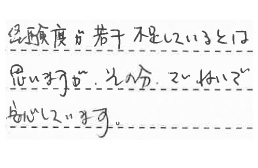 経験度が若干不足しているとは
思いますが、その分、ていねいで
安心しています。